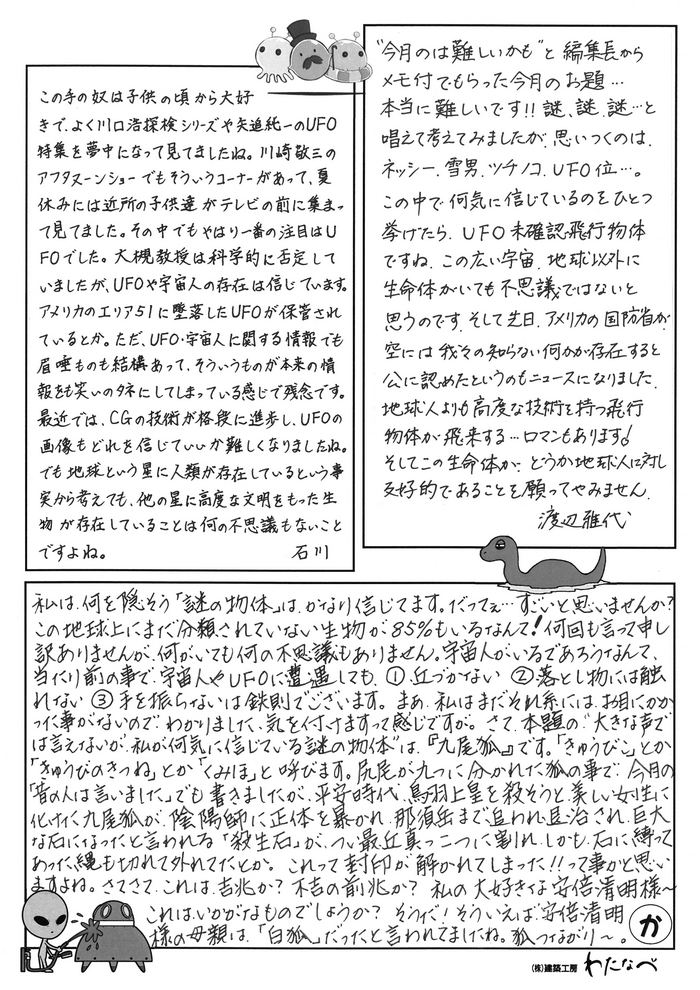 この手の奴は子供の頃から大好
きで、よく川口浩探検シリーズや矢追純一のUFO
特集を夢中になって見てましたね。川崎敬三の
アフタヌーンショーでもそういうコーナーがあって、夏
休みには近所の子供達がテレビの前に集まっ
て見てました。その中でもやはり一番の注目はU
FOでした。大槻教授は科学的に否定し
ていましたが、UFOや宇宙人の存在は信じています。
アメリカのエリア51に墜落したUFOが保管され
ているとか。ただ、UFO・宇宙人に関する情報でも
眉唾ものも結構あって、そういうものが本来の情
報をも笑いのタネにしてしまっている感じで残念です。
最近では、CGの技術が格段に進歩し、UFOの
画像もどれを信じていいか難しくなりましたね。
でも地球という星に人類が存在しているという事
実から考えても、他の星に高度な文明をもった生
物が存在していることは何の不思議もないこと
ですよね。 石川
"今月のは難しいかも"と編集長から
メモ付でもらった今月のお題…
本当に難しいです!!謎、謎、謎…と
唱えて考えてみましたが、思いつくのは、
ネッシー、雪男、ツチノコ、UFO位…。
この中で何気に信じているのをひとつ
挙げたら、UFO未確認飛行物体
ですね。この広い宇宙、地球以外に
生命体がいても不思議ではないと
思うのです。そして先日、アメリカの国防省が、
空には我々の知らない何かが存在すると
公に認めたというのもニュースになりました。
地球人よりも高度な技術を持つ飛行
物体が飛来する…ロマンもあります!
そしてこの生命体が、どうか地球人に対し
友好的であることを願ってやみません。
渡辺雅代
私は、何を隠そう「謎の物体」は、かなり信じてます。だってぇ…すごいと思いませんか?
この地球上にまだ分類されていない生物が85%もいるなんて!何回も言って申し
訳ありませんが、何がいても何の不思議もありません。宇宙人がいるであろうなんて、
当たり前の事で、宇宙人やUFOに遭遇しても、①近づかない ②落とし物には触
れない ③手を振らないは鉄則でございます。まあ、私はまだそれ系には、お目にかか
った事がないので、わかりました、気を付けますって感じですが。さて、本題の"大きな声で
は言えないが、私が何気に信じている謎の物体"は、『九尾狐』です。「きゅうびこ」とか
「きゅうびのきつね」とか「くみほ」と呼びます。尻尾が九つに分かれた狐の事で、今月の
「昔の人は言いました」でも書きましたが、平安時代、鳥羽上皇を殺そうと美しい女性に
化けた九尾狐が、陰陽師に正体を暴かれ、那須岳まで追われ退治され、巨大
な石になったと言われる「殺生石」が、つい最近真っ二つに割れ、しかも、石に縛って
あった縄も切れて外れてたとか。これって封印が解かれてしまった!!って事かと思い
ますよね。さてさて、これは、吉兆か?不吉の前兆か?私の大好きな安倍清明様〜
これは、いかがなものでしょうか?そうだ!そういえば、安倍清明
様の母親は、「白狐」だったと言われてましたね。狐つながり〜。
か
(株)建築工房 わたなべ